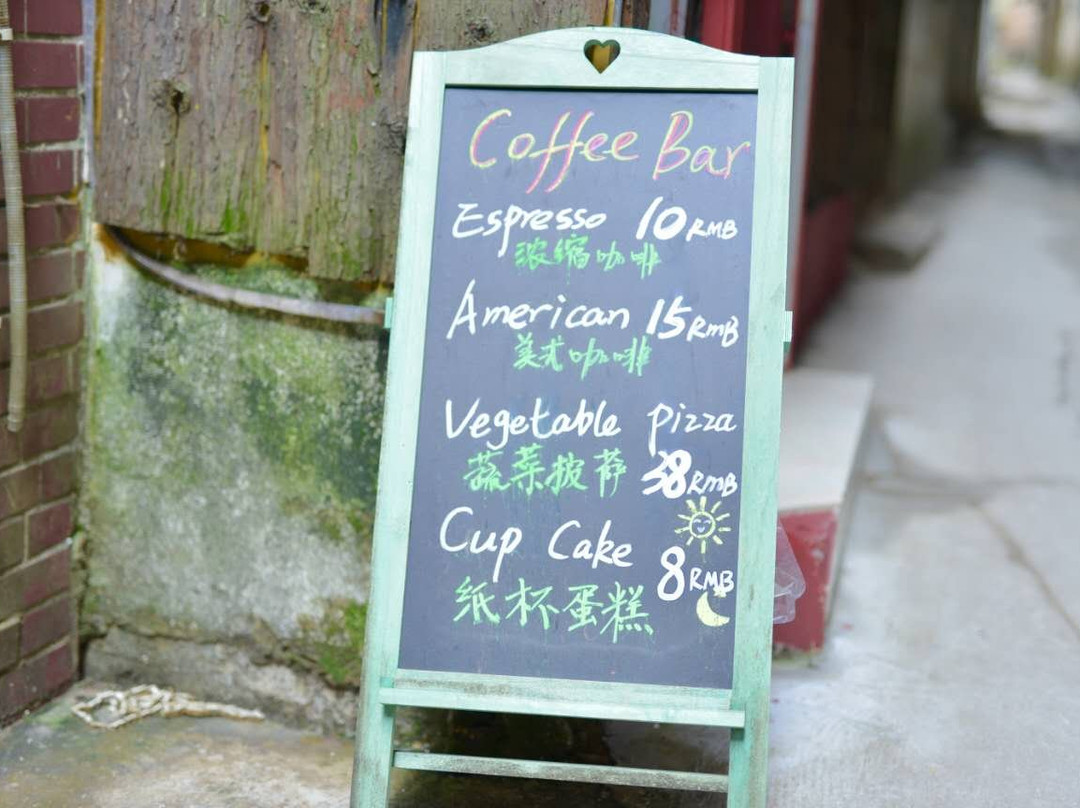 Coffee Bar
Espresso 10 RMB
浓缩咖啡
American 15 RMB
美式咖啡
Vegetable Pizza
蔬菜披萨 38 RMB
Cup Cake
8 RMB
纸杯蛋糕